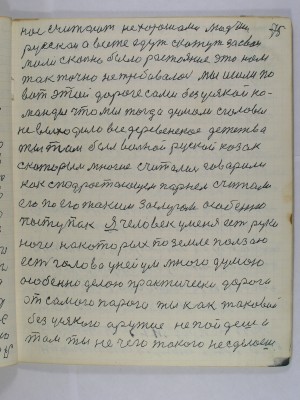 ное считают не хорошими людьми
75
русской а вы же едут скажут дасвои
мали сколно было растояние это нам
так точно нетребавалос мы ишли по
вот этай дороге сами без уякой ко-
манды что мы тогда думали с головы
не выходило все деревенское детство
ты там был вольной руской козак
скоторым многие считалис гаварили
как с подростающим парнем считали
его по его таким заслугам особенно
поступак Я человек уменя ест руки
ноги на которых по земле ползаю
ест голова у ней ум много думаю
особенно делаю практически дорога
от самого парога ты как таковой
без уякого оружие не пойдеш а
там ты не чего такого не сделаеш